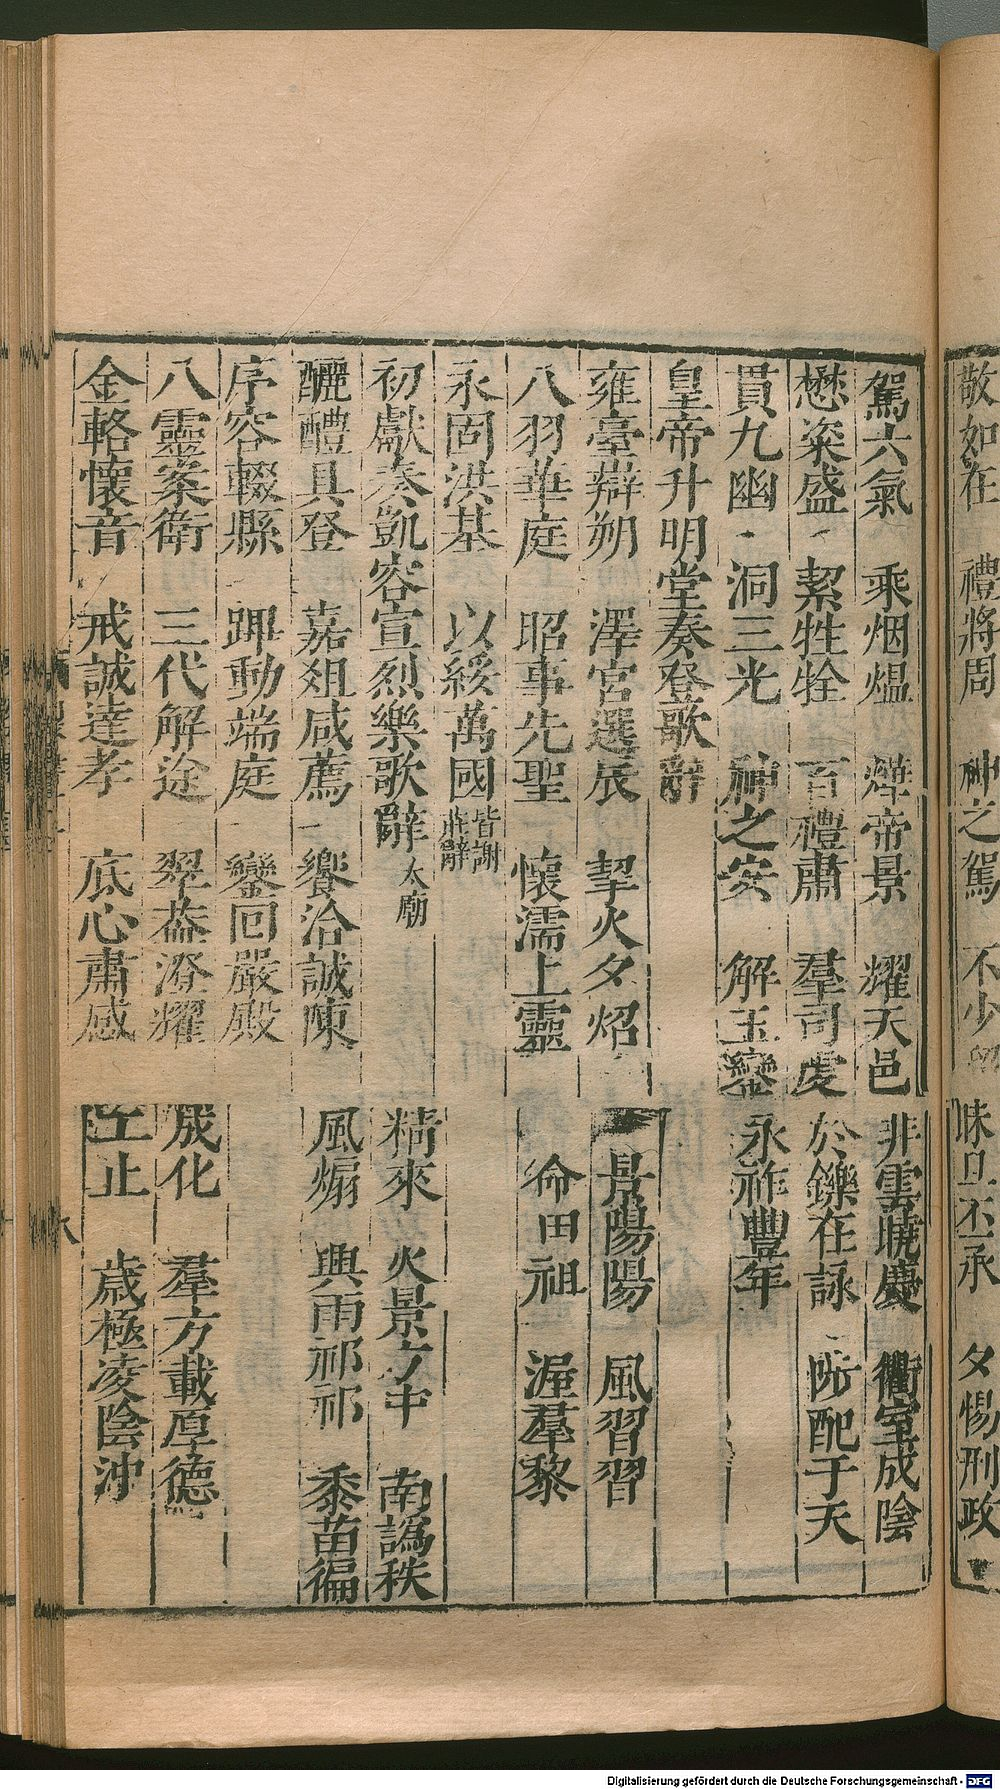 敬如在　禮將周　神之駕　不少留　昧旦丕承　夕惕刑政
駕六氣　乘烟熅　燁帝景　耀天邑　非雲曉慶　衢室成陰
懋粢盛　絜牲牷　百禮肅　羣司虔　於鑠在詠　陟配于天
貫九幽　洞三光　神之安　解玉鑾　永祚豐年
皇帝升明堂奏登歌辭
雍臺辯朔　澤宮選辰　挈火夕炤　景陽陽　風習習
八羽華庭　昭事先聖　懷濡上靈　命田祖　渥羣黎
永固洪基　以綏萬國　皆謝莊辭
初獻奏凱容宣烈樂歌辭　太廟　精來　火景方中　南譌秩
醽醴具登　嘉俎咸薦　饗洽誠陳　風煽　興雨祁祁　黍苗徧
序容輟縣　蹕動端庭　鑾回嚴殿
八靈案衛　三代解途　翠葢澄耀　成化　羣方載厚德
金輅懷音　戒誠達孝　底心肅感　工止　歲極凌陰沖
Digitalisierung gefördert durch die Deutsche Forschungsgemeinschaft - DFG